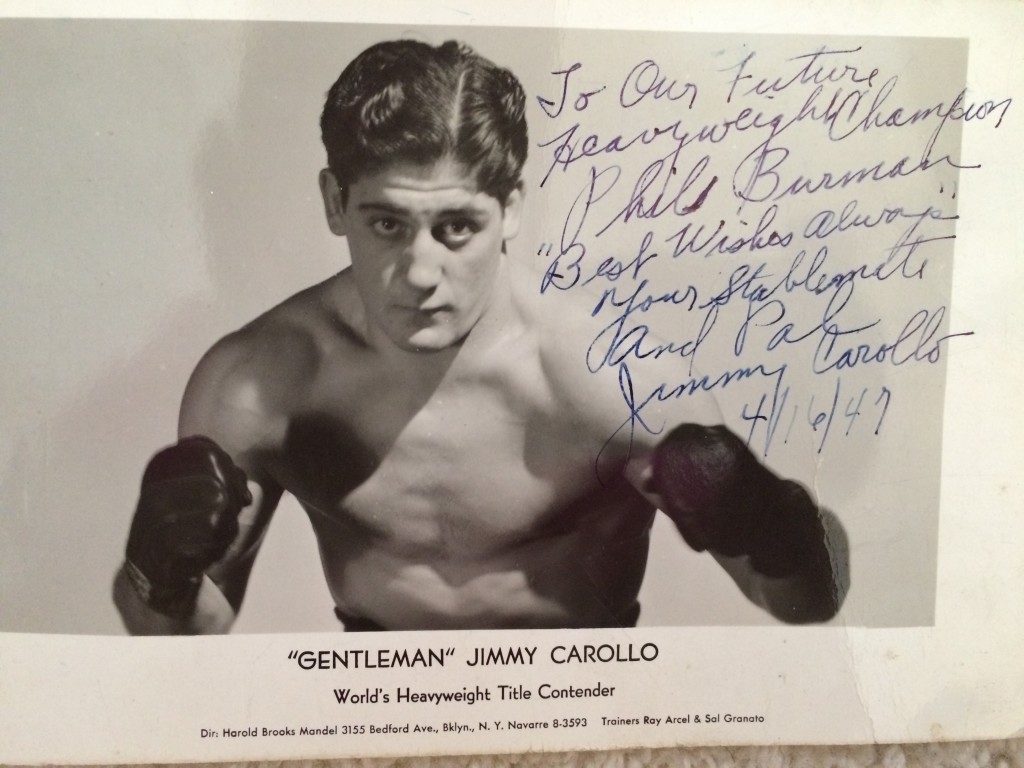 To Our Future
Heavyweight Champion
Phil Burman
"Best Wishes Always"
Your Stablemate
And Pal
Jimmy Carollo
4/16/47
"GENTLEMAN" JIMMY CAROLLO
World's Heavyweight Title Contender
Dir: Harold Brooks Mandel 3155 Bedford Ave., Bklyn., N. Y. Navarre 8-3593 Trainers Ray Arcel & Sal Granato